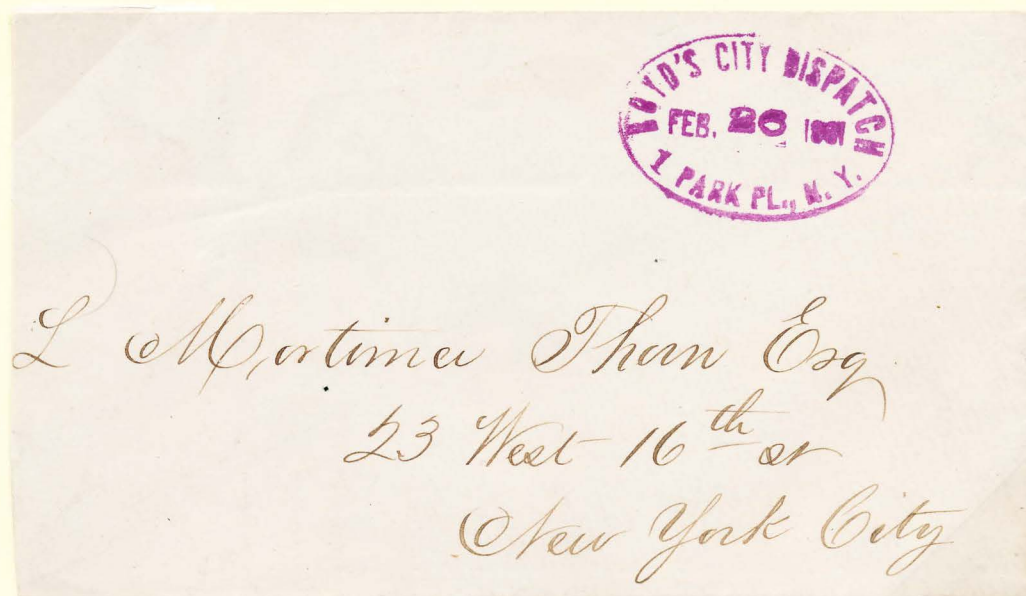 BOYD'S CITY DISPATCH
FEB. 26 1881
1 PARK PL., N. Y.
L Mortimer Thorn Esq
23 West 16th st
New York City